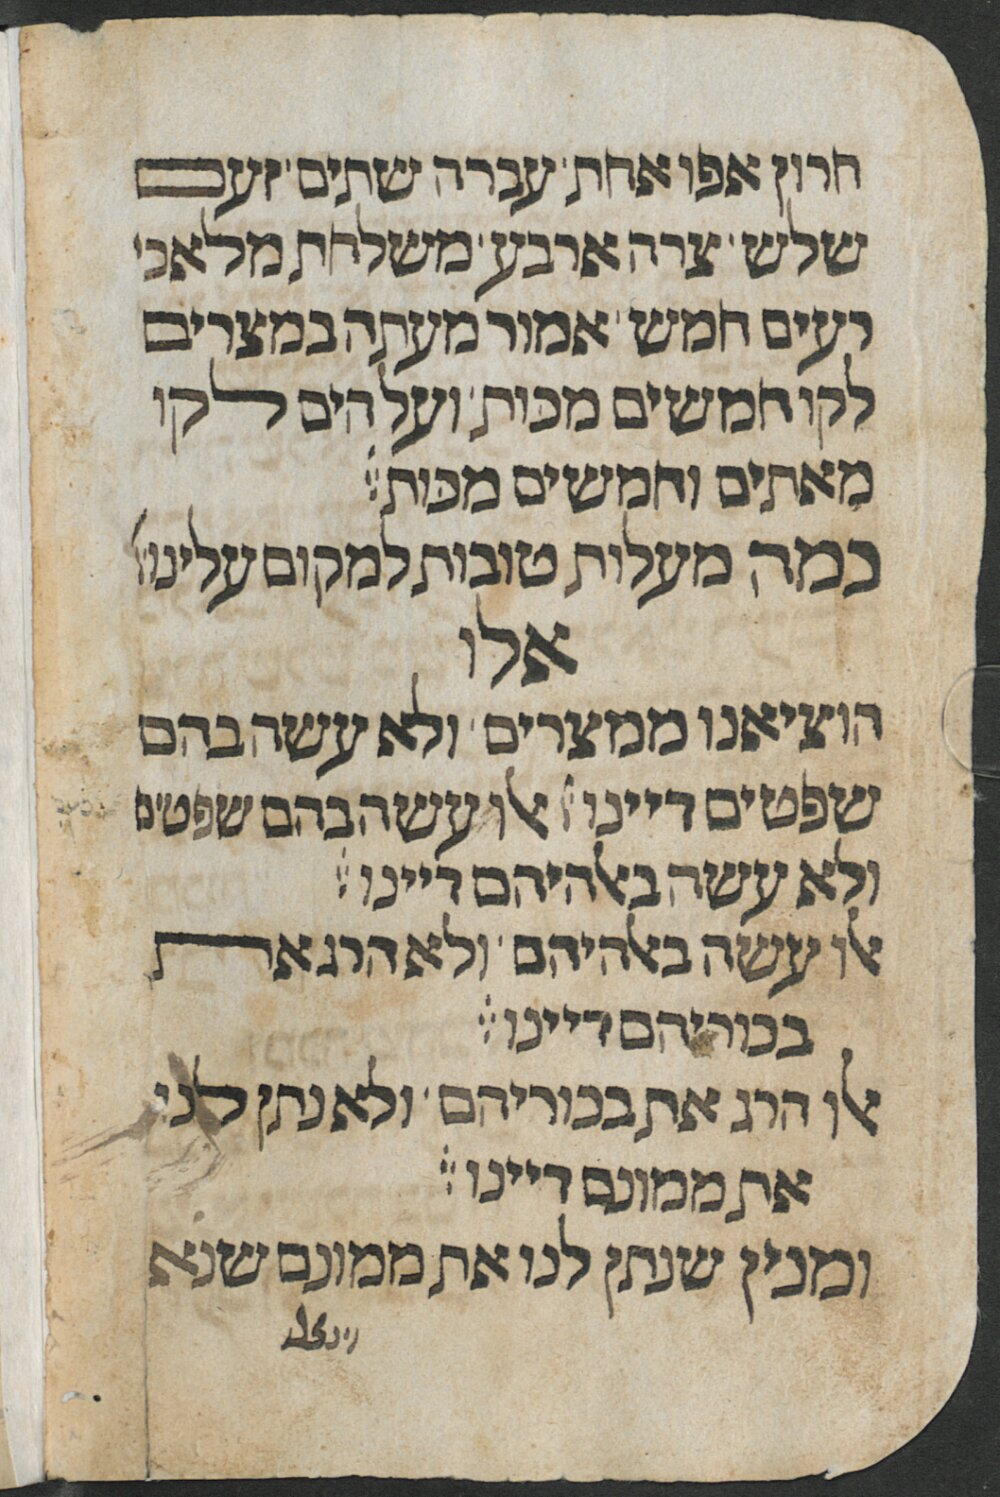 חרון אפו אחת· עברה שתים· זעם
שלש· צרה ארבע· משלחת מלאכי
רעים חמש· אמור מעתה במצרים
לקו חמשים מכות· ועל הים לקו
מאתים וחמשים מכות:
כמה מעלות טובות למקום עלינו:
אלו
הוציאנו ממצרים· ולא עשה בהם
שפטים דיינו: אלו עשה בהם שפטים
ולא עשה באלהיהם דיינו:
אלו עשה באלהיהם· ולא הרג את
בכוריהם דיינו:
אלו הרג את בכוריהם· ולא נתן לנו
את ממונם דיינו:
ומנין שנתן לנו את ממונם שנא
וינצלו